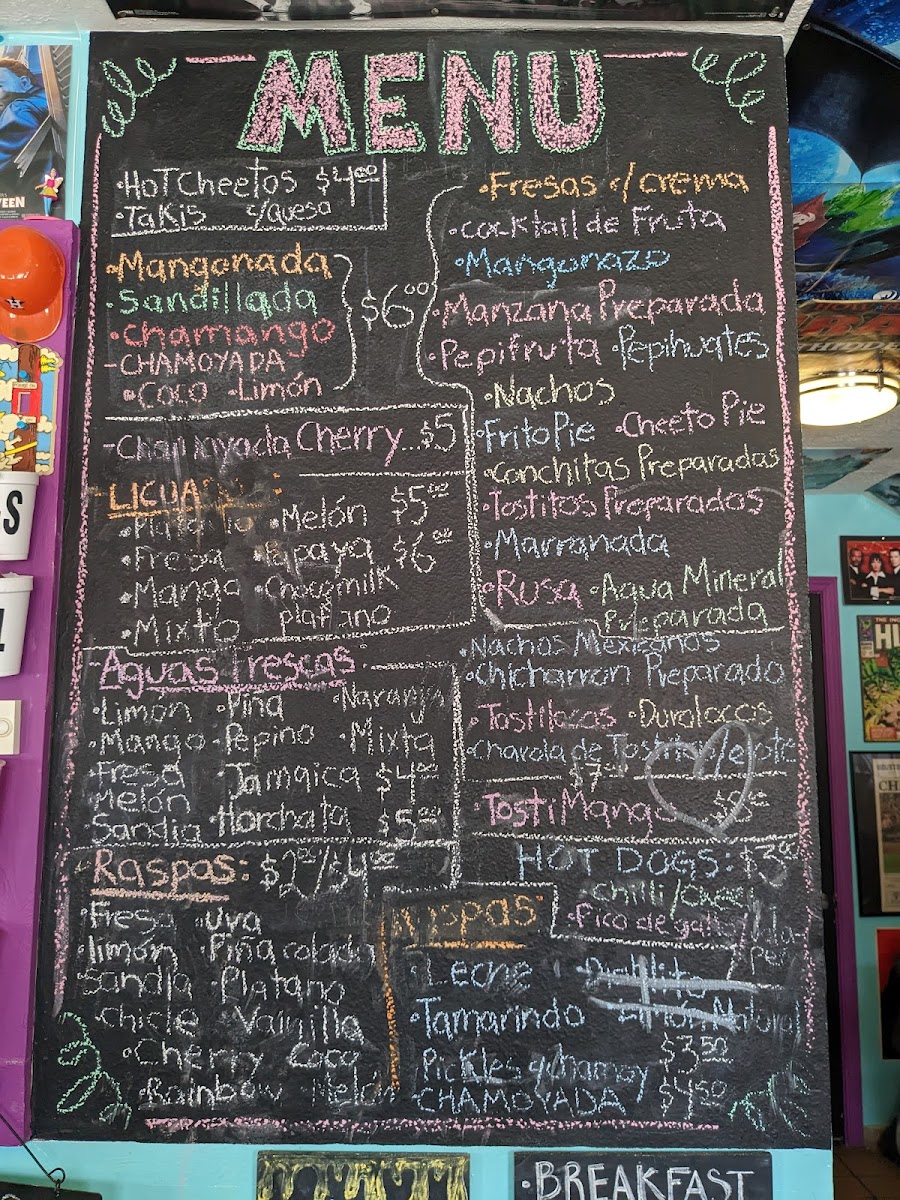 MENU
•HOT Cheetos $4.00
•TaKis c/queso
•Mangonada
•Sandillada
•chamango
-CHAMOYADA
•Coco •Limón
$6.00
-Chamoyada Cherry...$5
-LICUA
•Melón $5.00
•Fresa •Papaya $6.00
•Mango •Chocomilk
•Mixto platano
-Aguas frescas
•Limon •Piña •Naranja
•Mango •Pepino •Mixta
•Fresa •Jamaica $4.00
Melón
Sandia •Horchata $5.00
-Raspas: $2.00/$4.00
•Fresa •Uva
•limón •Piña colada
•Sandia •Platano
•chicle •Vainilla
•Cherry Coco
•Rainbow Melón
•Fresas c/crema
•cocktail de Fruta
•Mangonazo
•Manzana Preparada
•Pepifruta •Pepihuates
•Nachos
•Frito Pie •Cheeto Pie
•Conchitas Preparadas
•Tostitos Preparados
•Marranada
•Rusa •Agua Mineral
Preparada
•Nachos Mexicanos
•Chicharron Preparado
•Tostilocos •Durolocos
•Charola de Tostito c/elote
$7
•TostiMango $8.00
HOT DOGS: $3.00
•Chilli/Chees
•Pico de gallo
Raspas
Leche
Tamarindo Natural
Pickles y chamoy $3.50
•CHAMOYADA $4.50
•BREAKFAST
HULK